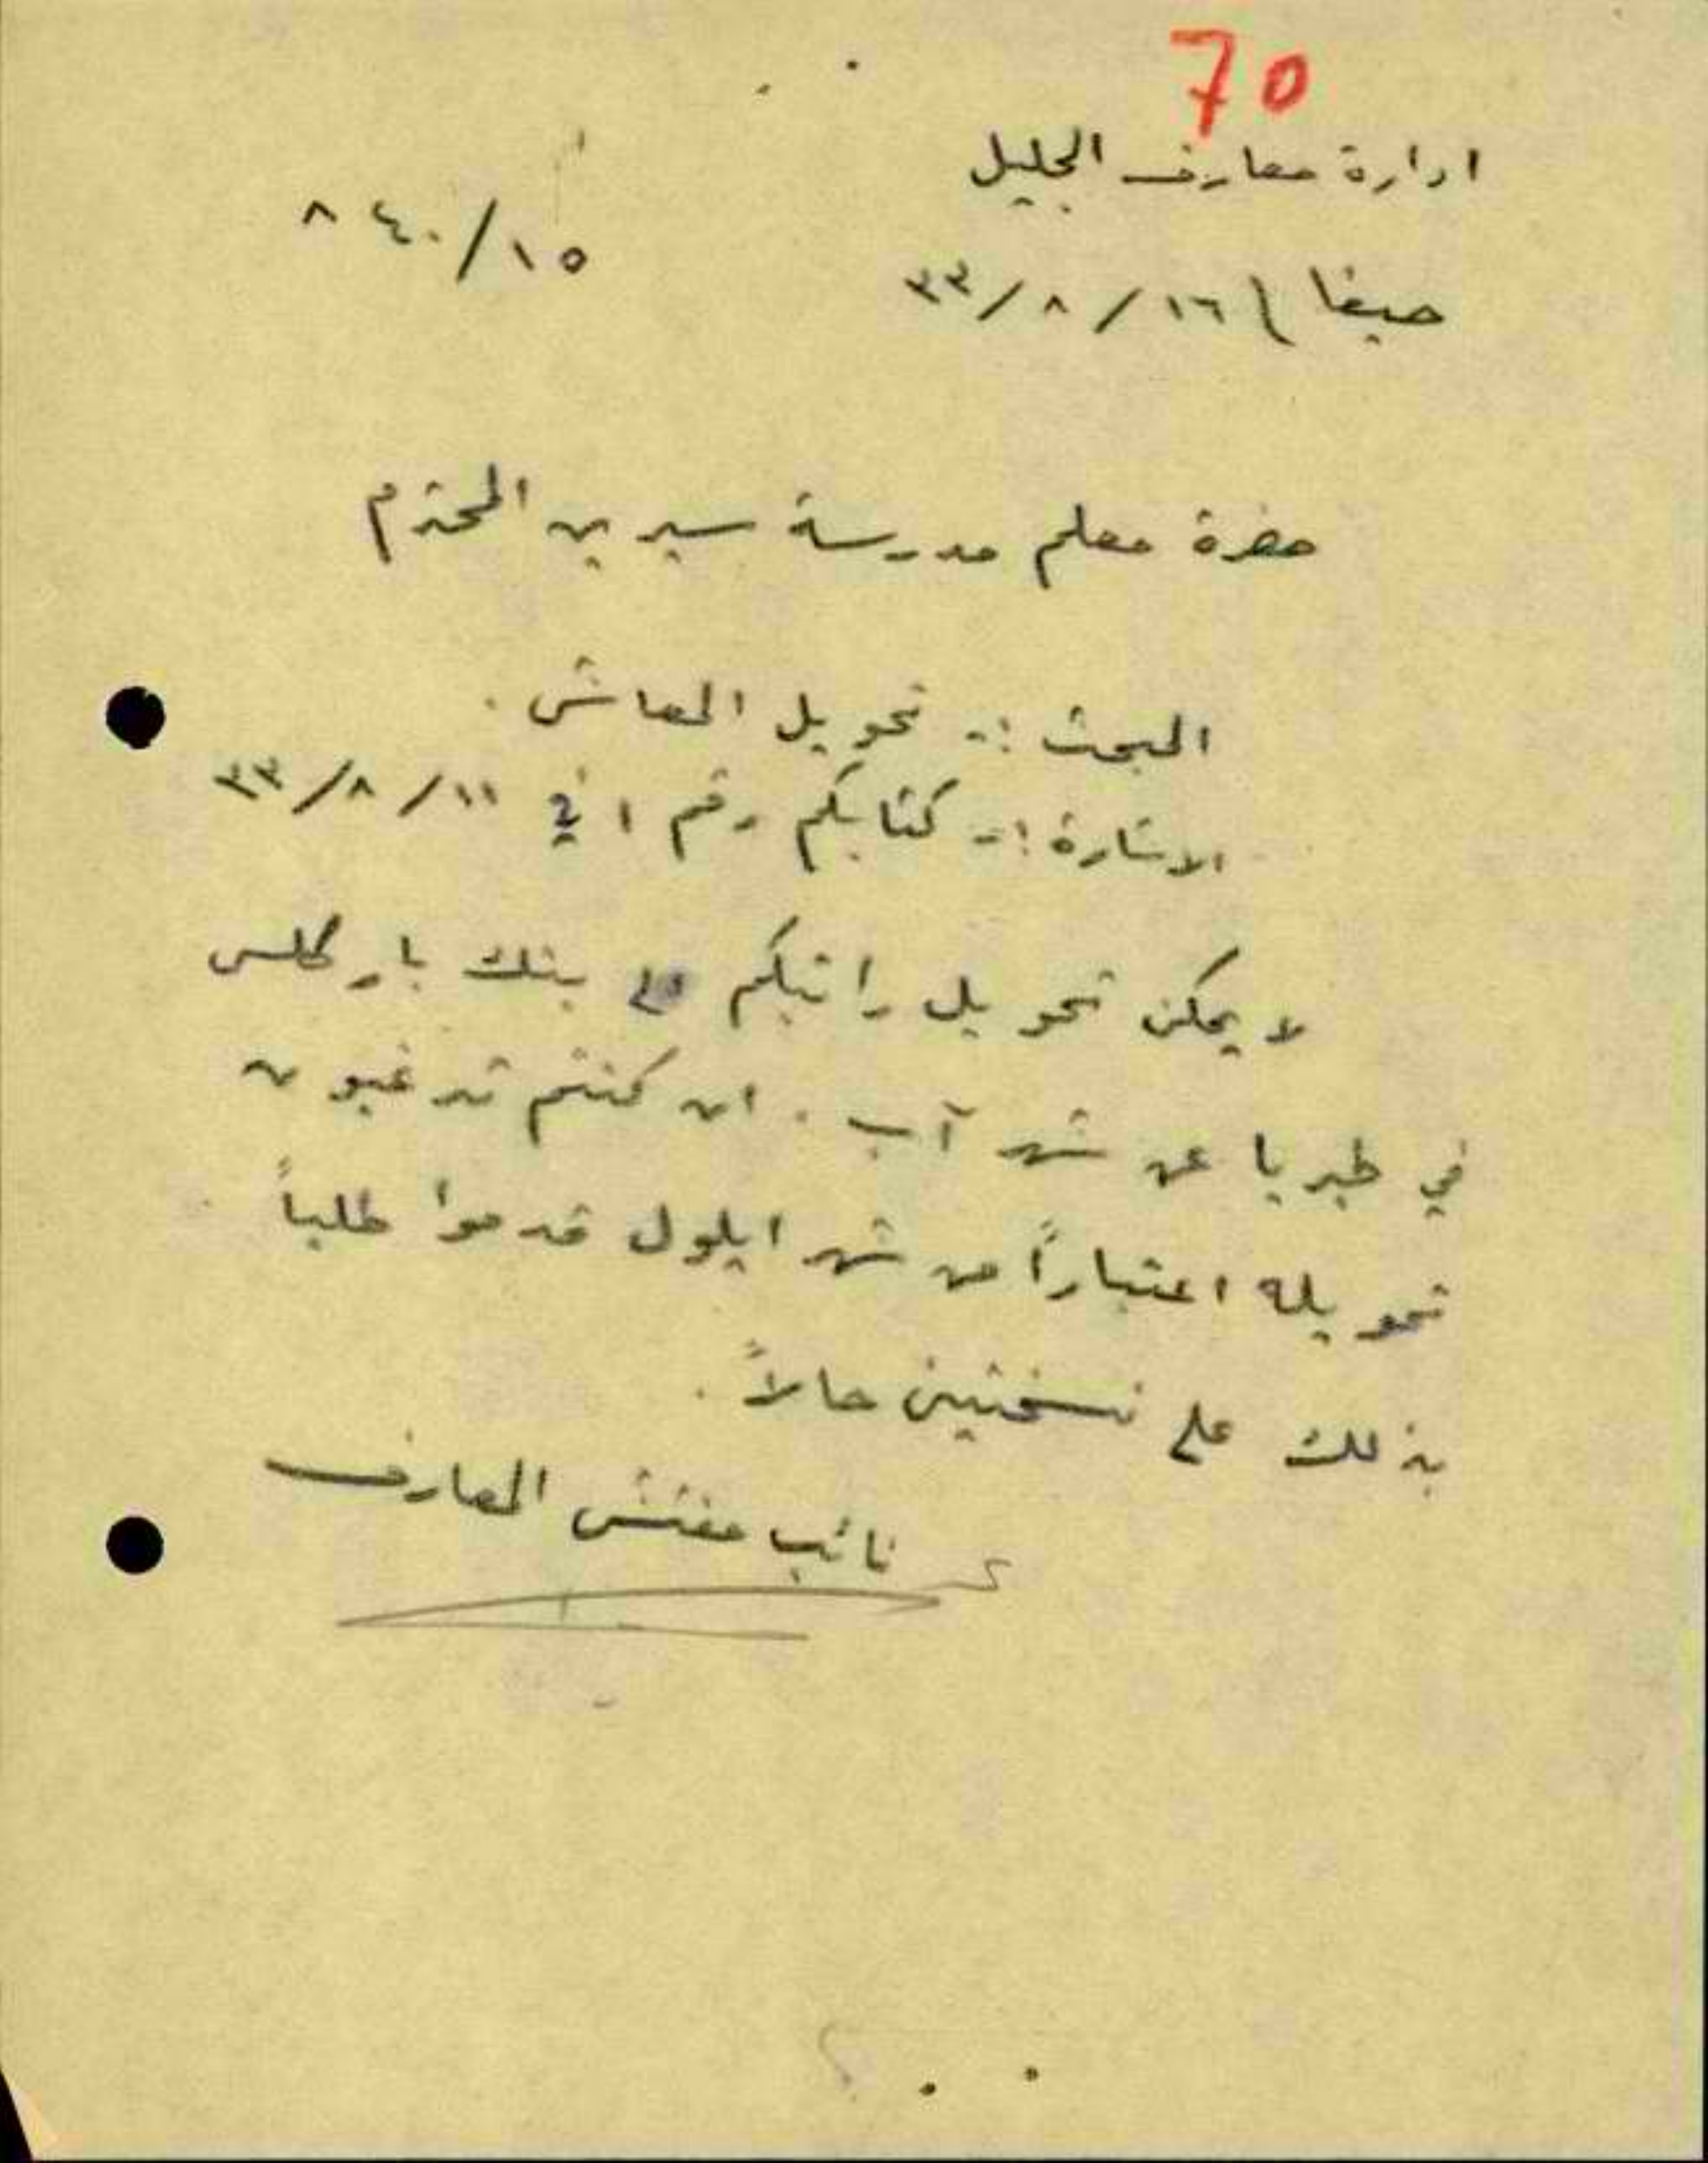 70
ادارة معارف الجليل
٨٤٠/١٥
حيفا ١٦/٨/٣٣
حضرة معلم مدرسة سيرين المحترم
البحث :- تحويل المعاش .
الاشارة :- كتابكم رقم ١ في ١١/٨/٣٣
لا يمكن تحويل راتبكم الى بنك باركلس
في طبريا عن شهر آب . ان كنتم ترغبون
تحويله اعتباراً من شهر ايلول قدموا طلباً
بذلك على نسختين حالاً .
نائب مفتش المعارف